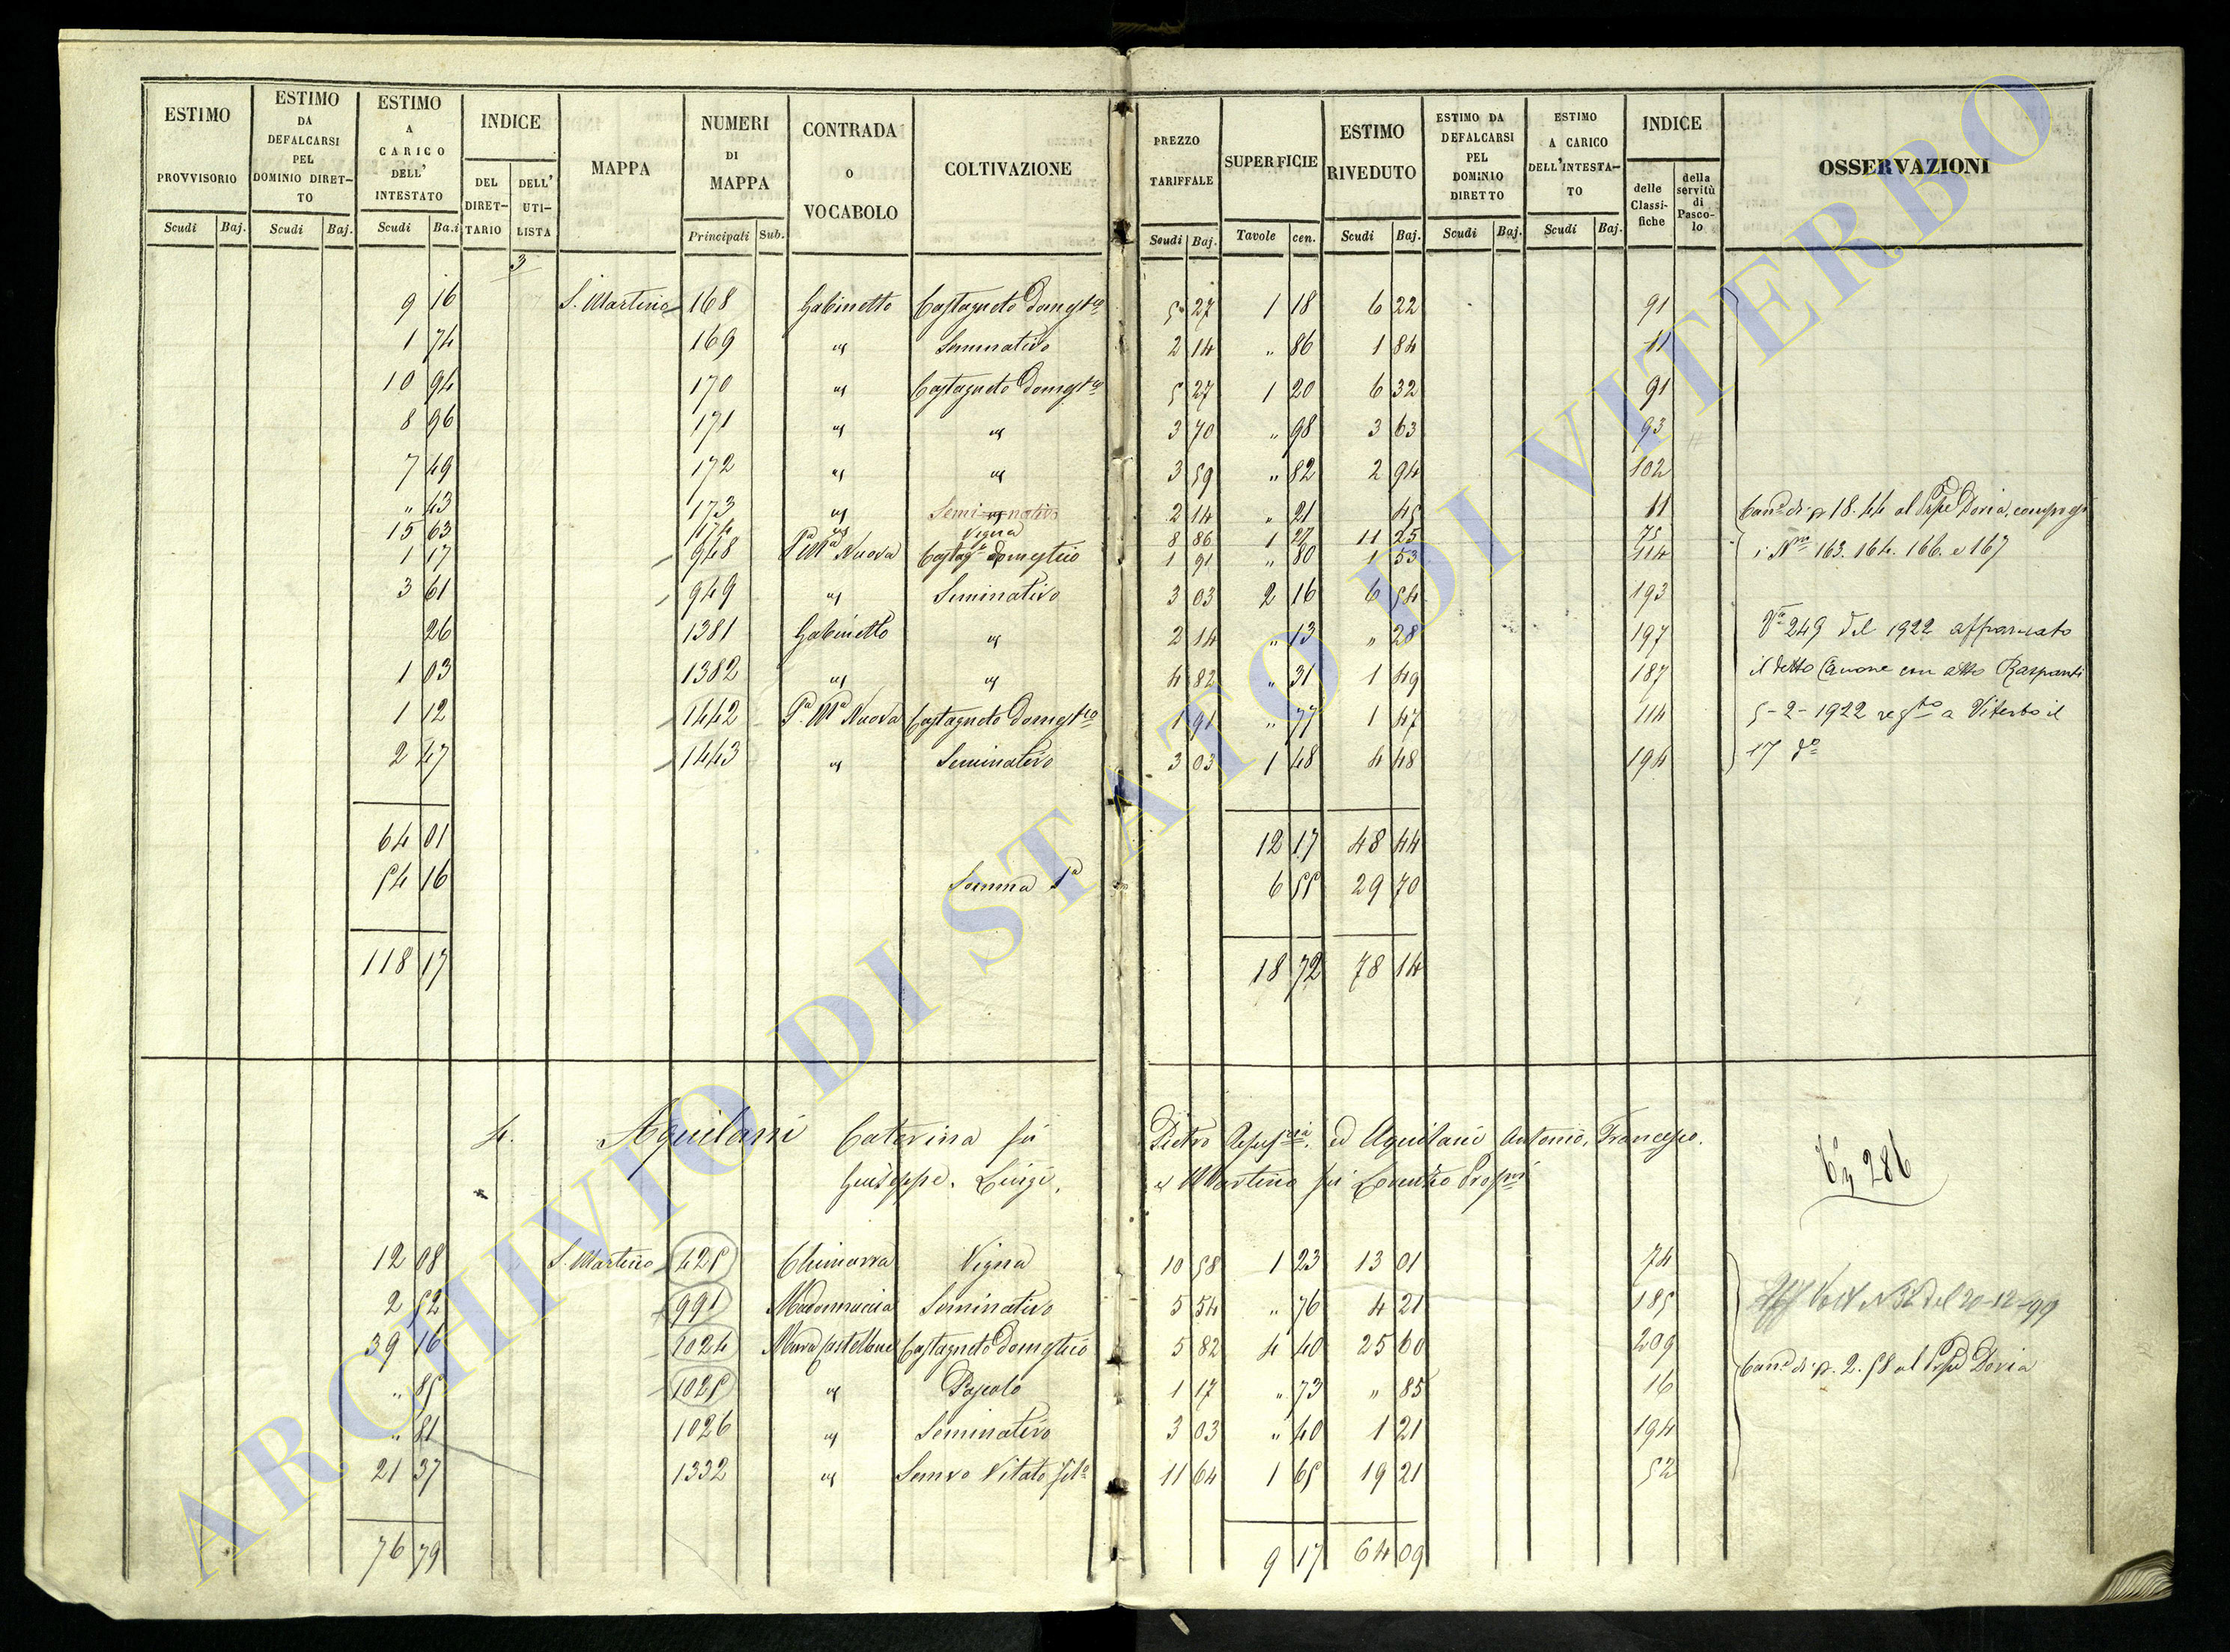 ESTIMO PROVVISORIO Scudi Baj.
ESTIMO DA DEFALCARSI PEL DOMINIO DIRET-TO Scudi Baj.
ESTIMO A CARICO DELL' INTESTATO Scudi Ba.i
INDICE DEL DIRET-TARIO DELL' UTI-LISTA
MAPPA
NUMERI DI MAPPA Principali Sub.
CONTRADA O VOCABOLO
COLTIVAZIONE
PREZZO TARIFFALE Scudi Baj.
SUPERFICIE Tavole cen.
ESTIMO RIVEDUTO Scudi Baj.
ESTIMO DA DEFALCARSI PEL DOMINIO DIRETTO Scudi Baj.
ESTIMO A CARICO DELL'INTESTA-TO Scudi Baj.
INDICE delle Classi-fiche della servitù di Pasco-lo
OSSERVAZIONI
3
9 16 S. Martino 168 Gabinetto Castagneto Domestco 5 27 1 18 6 22 91
1 74 169 " Seminativo 2 14 " 86 1 84 11
10 94 170 " Castagneto Domestco 5 27 1 20 6 32 91
8 96 171 " " 3 70 " 98 3 63 93
7 49 172 " " 3 59 " 82 2 94 102
" 43 173 " Seminativo 2 14 " 21 45 11 Cane di p 18.44 al Prpe Doria, compresi
15 63 174 " Vigna 8 86 1 27 11 25 75
1 17 948 Pa Ma Nuova Castago domestico 1 91 " 80 1 53 114 i Nri 163. 164. 166. e 167
3 61 949 " Seminativo 3 03 2 16 6 54 193
26 1381 Gabinetto " 2 14 " 13 " 28 197 Va 249 del 1922 affrancato
1 03 1382 " " 4 82 " 31 1 49 187 il detto Canone con atto Raspanti
1 12 1442 Pa Ma Nuova Castagneto Domestco 1 91 " 77 1 47 114 5-2-1922 regto a Viterbo il
2 47 1443 " Seminativo 3 03 1 48 4 48 194 17 do
64 01 12 17 48 44
54 16 Somma Pa 6 55 29 70
118 17 18 72 78 14
4. Aquilani Caterina fu Pietro ed Aquilani Antonio, Francesco.
Giuseppe. Luigi, e Martino fu Lorenzo
286
12 08 S. Martino 425 Chimarra Vigna 10 58 1 23 13 01 74
2 52 991 Madonnuccia Seminativo 5 54 " 76 4 21 185 Aff Volt N 32 del 20-12-99
39 16 1024 Castagneto Domestico 5 82 4 40 25 60 209
" 85 1025 " Pascolo 1 17 " 73 " 85 16 Cane di p. 2.58 al Prpe Doria
" 81 1026 " Seminativo 3 03 " 40 1 21 194
21 37 1332 " Semvo Vitato 11 64 1 65 19 21 52
76 79 9 17 64 09
ARCHIVIO DI STATO DI VITERBO